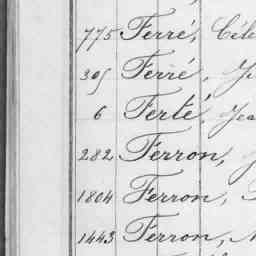 775 Ferré, Cél
305 Ferré, J
6 Ferté, Jea
282 Ferron, J
1804 Ferron,
1443 Ferron,